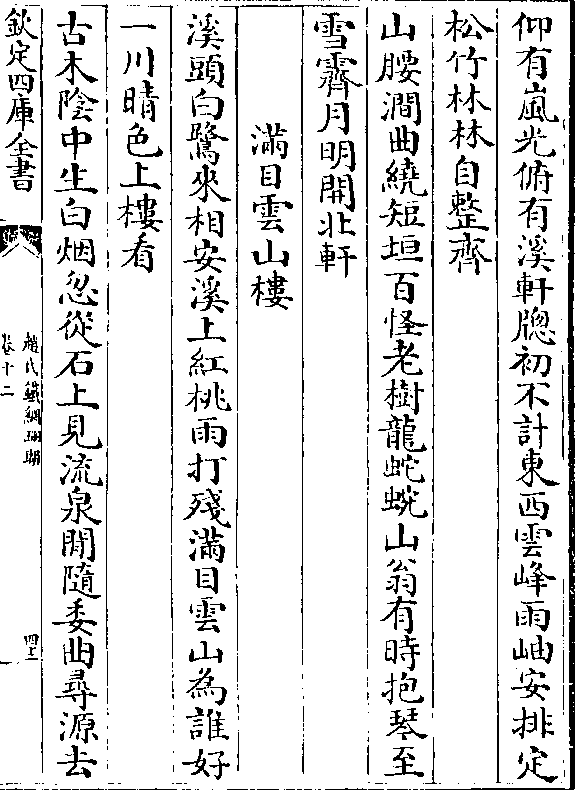 仰有嵐光俯有溪軒牎初不計東西雲峰雨岫安排定
松竹林林自整齊
山腰澗曲繞短垣百怪老樹龍蛇蜿山翁有時抱琴至
雪霽月明開北軒
滿目雲山樓
溪頭白鷺來相安溪上紅桃雨打殘滿目雲山為誰好
一川晴色上樓看
古木陰中生白烟忽從石上見流泉閒隨委曲尋源去
欽定四庫全書
趙氏鐵網珊瑚
卷十二
四十一